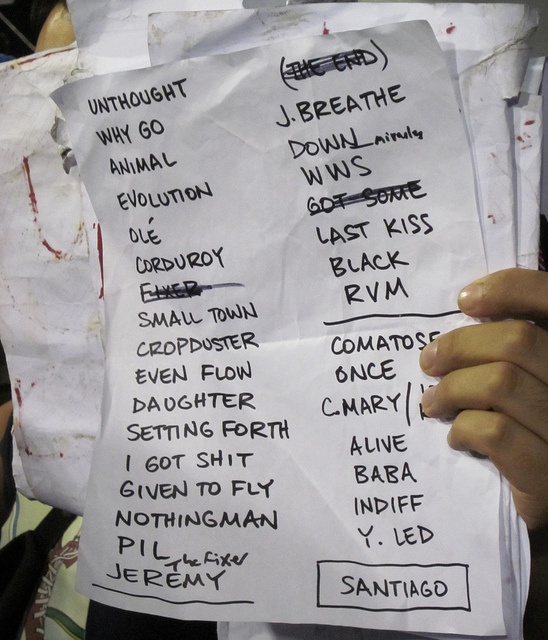 UNTHOUGHT
WHY GO
ANIMAL
EVOLUTION
OLÉ
CORDUROY
FIXER
SMALL TOWN
CROPDUSTER
EVEN FLOW
DAUGHTER
SETTING FORTH
I GOT SHIT
GIVEN TO FLY
NOTHINGMAN
PIL
The Fixer
JEREMY
(THE END)
J. BREATHE
DOWN
WWS
GOT SOME
LAST KISS
BLACK
RVM
COMATOSE
ONCE
C.MARY/
ALIVE
BABA
INDIFF
Y. LED
SANTIAGO